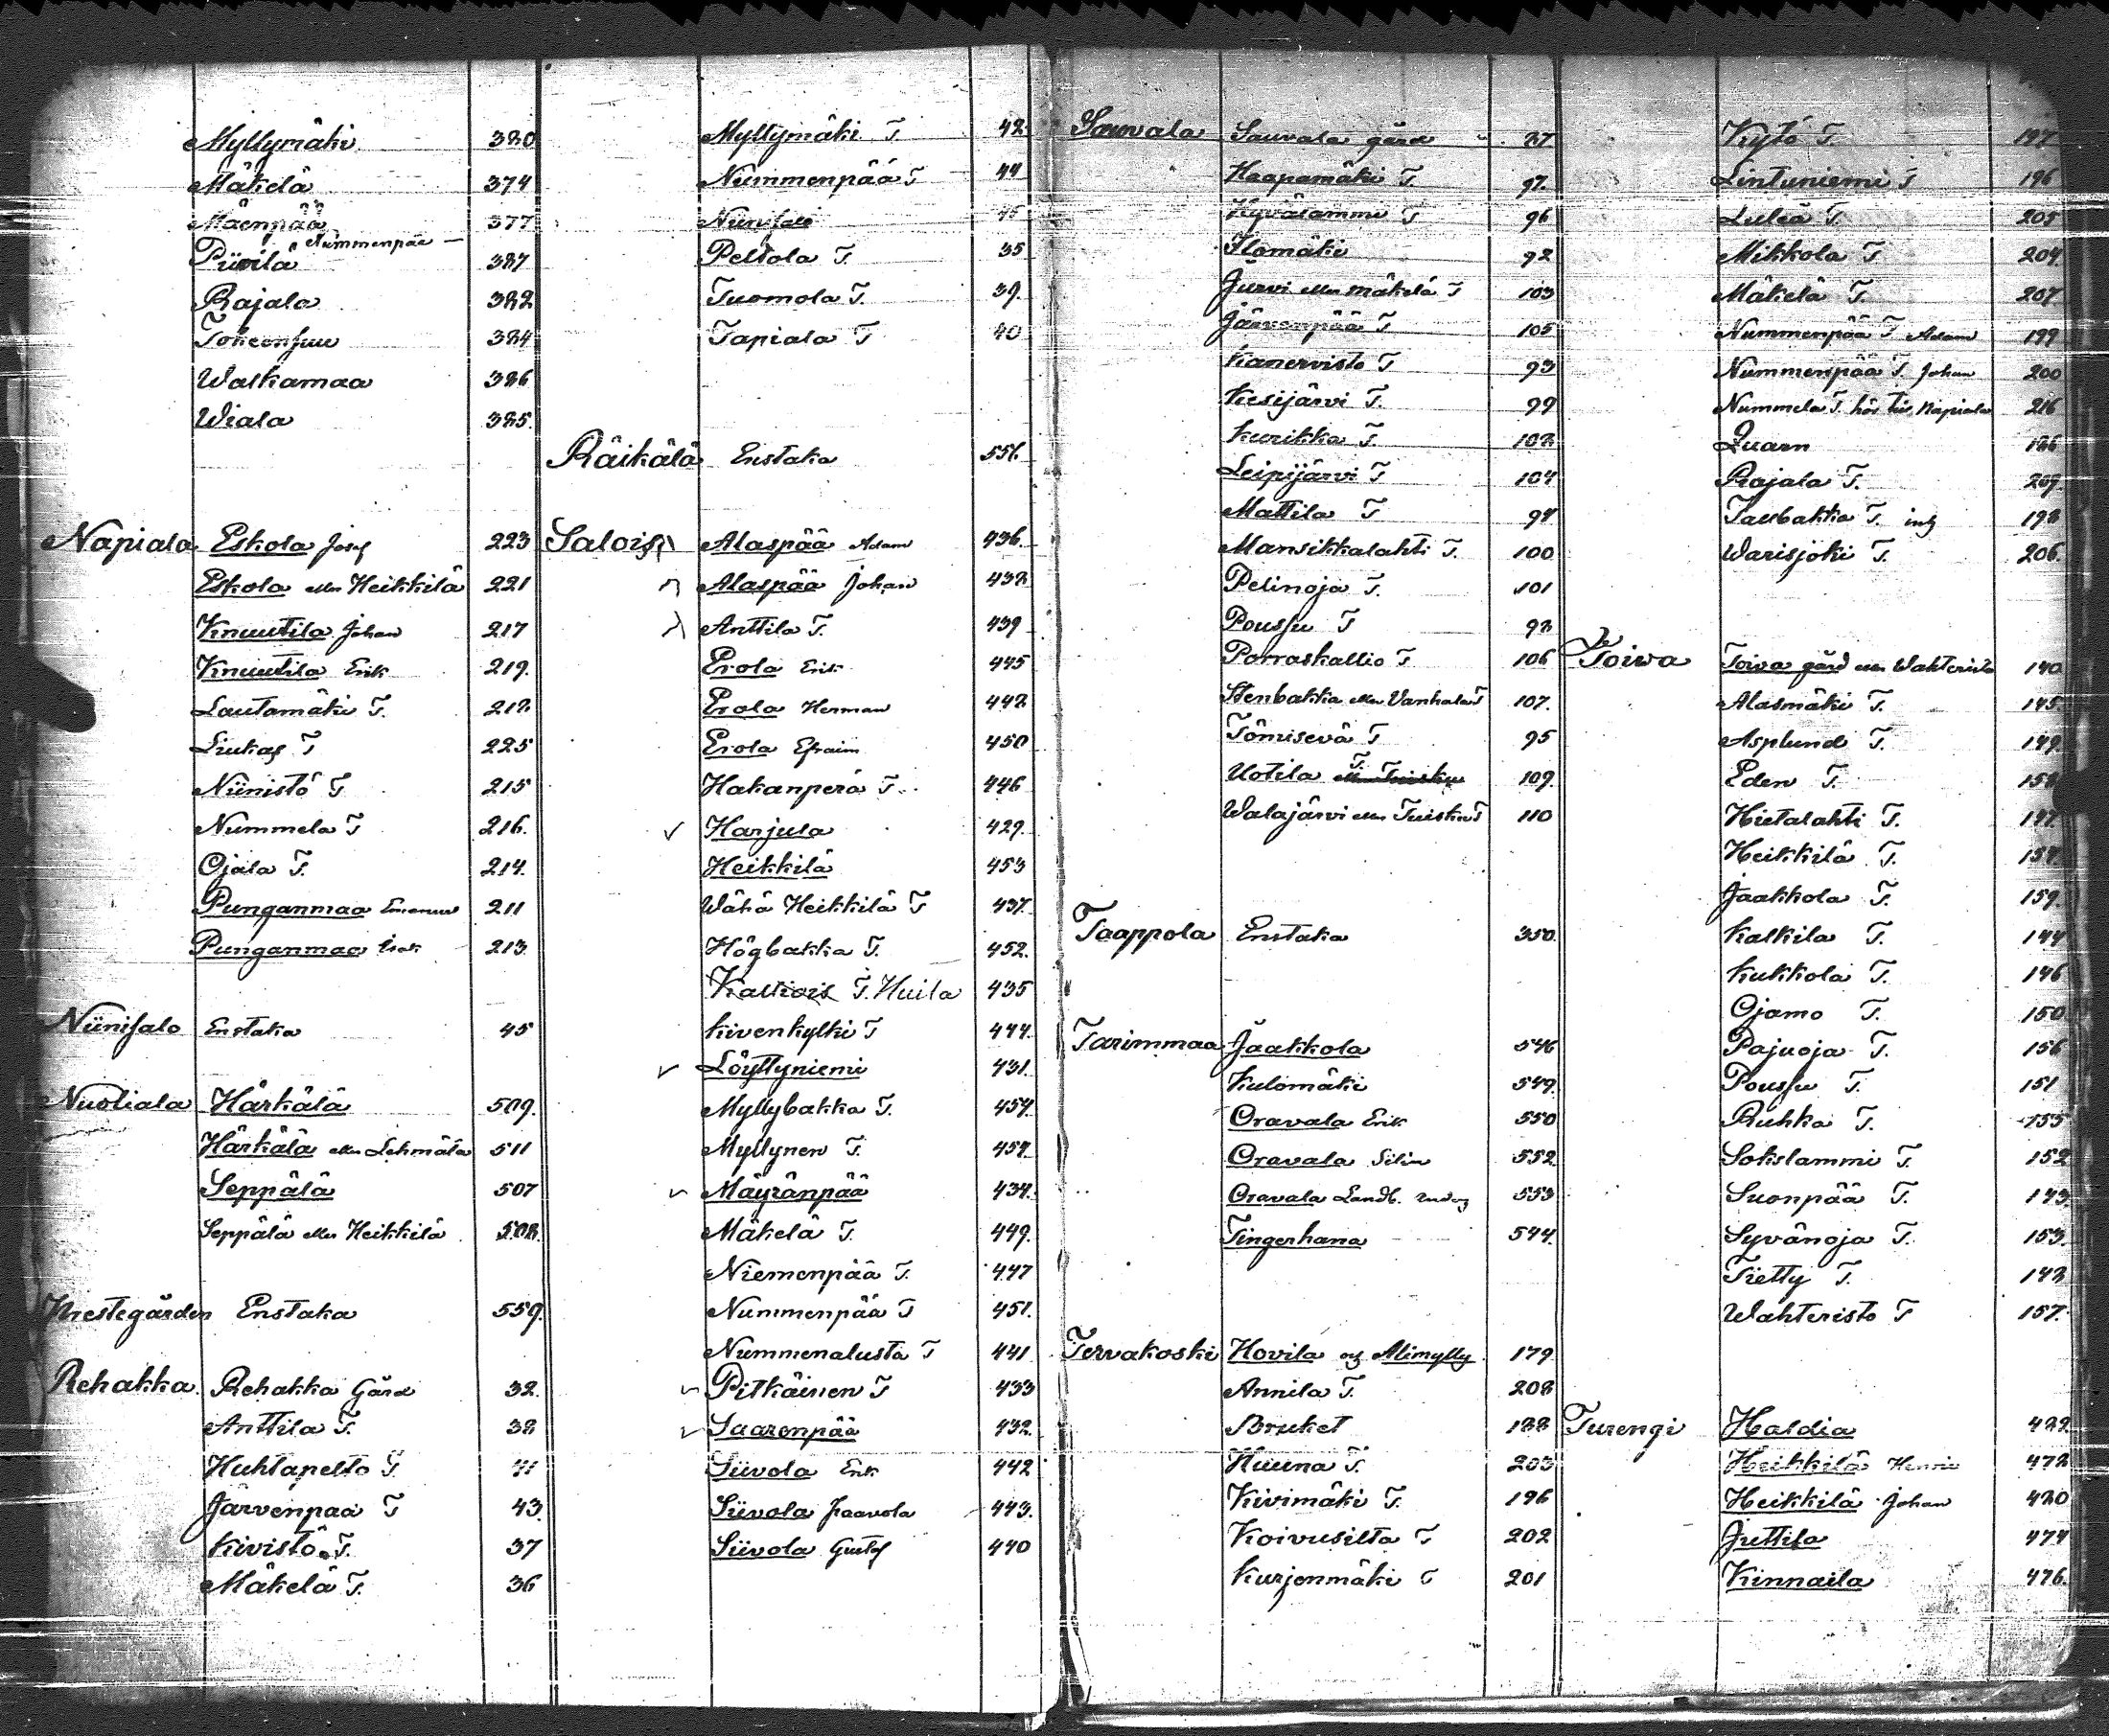 Myllymäki 380
Mäkelä 374
Mäenpää 377
Nummenpää —
Piirilä 387
Rajala 382
Tokeensuu 384
Walkamaa 386
Wiala 385.
Napiala Eskola Josef 223
Eskola eller Heikkilä 221
Knuutila Johan 217
Knuutila Erik 219.
Lautamäki T. 212
Liukas T 225
Niinistö T 215
Nummela T 216.
Ojala T. 214.
Punganmaa 211
Punganmaa Isak 213
Niinisalo Enstaka 45
Nuoliala Härkälä 509.
Härkälä eller Lehmälä 511
Seppälä 507
Seppälä eller Heikkilä 508.
Prestegården Enstaka 559.
Rehakka Rehakka Gård 32.
Anttila T. 38
Huhtapelto T. 41
Järvenpää T 43
Kivistö T. 37
Mäkelä T. 36
Myllymäki T. 42
Nummenpää T 44
Niinisalo 45
Peltola T. 35
Tuomola T. 39.
Tapiala T 40
Räikälä Enstaka 556.
Salois Alaspää Adam 436.
Alaspää Johan 438
Anttila T. 439
Erola Erik 445
Erola Herman 448
Erola Efraim 450
Hakanperä T. 446
Harjula 429.
Heikkilä 453
Wähä Heikkilä T 437.
Högbakka T. 452.
Kallois T. Huila 435
Kivenkylki T 444.
Löyttyniemi 431.
Myllybakka T. 454.
Myllynen T. 454.
Mäyränpää 434.
Mäkelä T. 449.
Niemenpää T. 447
Nummenpää T 451.
Nummenalusta T 441
Pitkäinen T 433
Saarenpää 432.
Siivola Erik 442
Siivola Paavola 443.
Siivola Gustaf 440
Sauvala Sauvala gård 87
Haapamäki T. 97.
Hyvälammi T 96
Ilomäki 92
Järvi eller Mäkelä T 103
Järvenpää T 105
Kanervisto T 93
Kesijärvi T. 99
Kurikka T. 102
Leipijärvi T 104
Mattila T 94
Mansikkalahti T. 100
Pelinoja T. 101
Poussu T 98
Porraskallio T 106
Stenbakka eller Vanhala T 107.
Tömisevä T 95
Uotila T. 109.
Walajärvi eller Tuisku T 110
Taappola Enstaka 350.
Tarimmaa Jaakkola 546
Kulomäki 549.
Oravala Erik 550
Oravala 552.
Oravala Landb. 553
Tingerhana 544.
Tervakoski Hovila och Alimylly 179
Annila T. 208
Bruket 188
Huuna T. 203
Kivimäki T. 196
Koivusilta T 202
Kurjenmäki T 201
Kytö T. 197
Lintuniemi T 196
Luleä T. 205
Mikkola T 204.
Mäkelä T. 207
Nummenpää T Adam 199
Nummenpää T. Johan 200
Nummela T. hör till Napiala 216
Quarn 186
Rajala T. 209.
Taubakka T. 198
Warisjoki T. 206.
Toiva Toiva gård eller Wahteristo 140
Alasmäki T. 145.
Asplund T. 149.
Eden T. 158
Hietalahti T. 147.
Heikkilä T. 154.
Jaakkola T. 159.
Kalkila T. 144
Kukkola T. 146
Ojamo T. 150
Pajuoja T. 156
Poussu T. 151
Ruhka T. 155
Sokslammi T. 152
Suonpää T. 143.
Syvänoja T. 153.
Tietty T. 142
Wahteristo T 157.
Turengi Haldia 482
Heikkilä Henric 478
Heikkilä Johan 480
Juttila 474
Kinnaila 476.